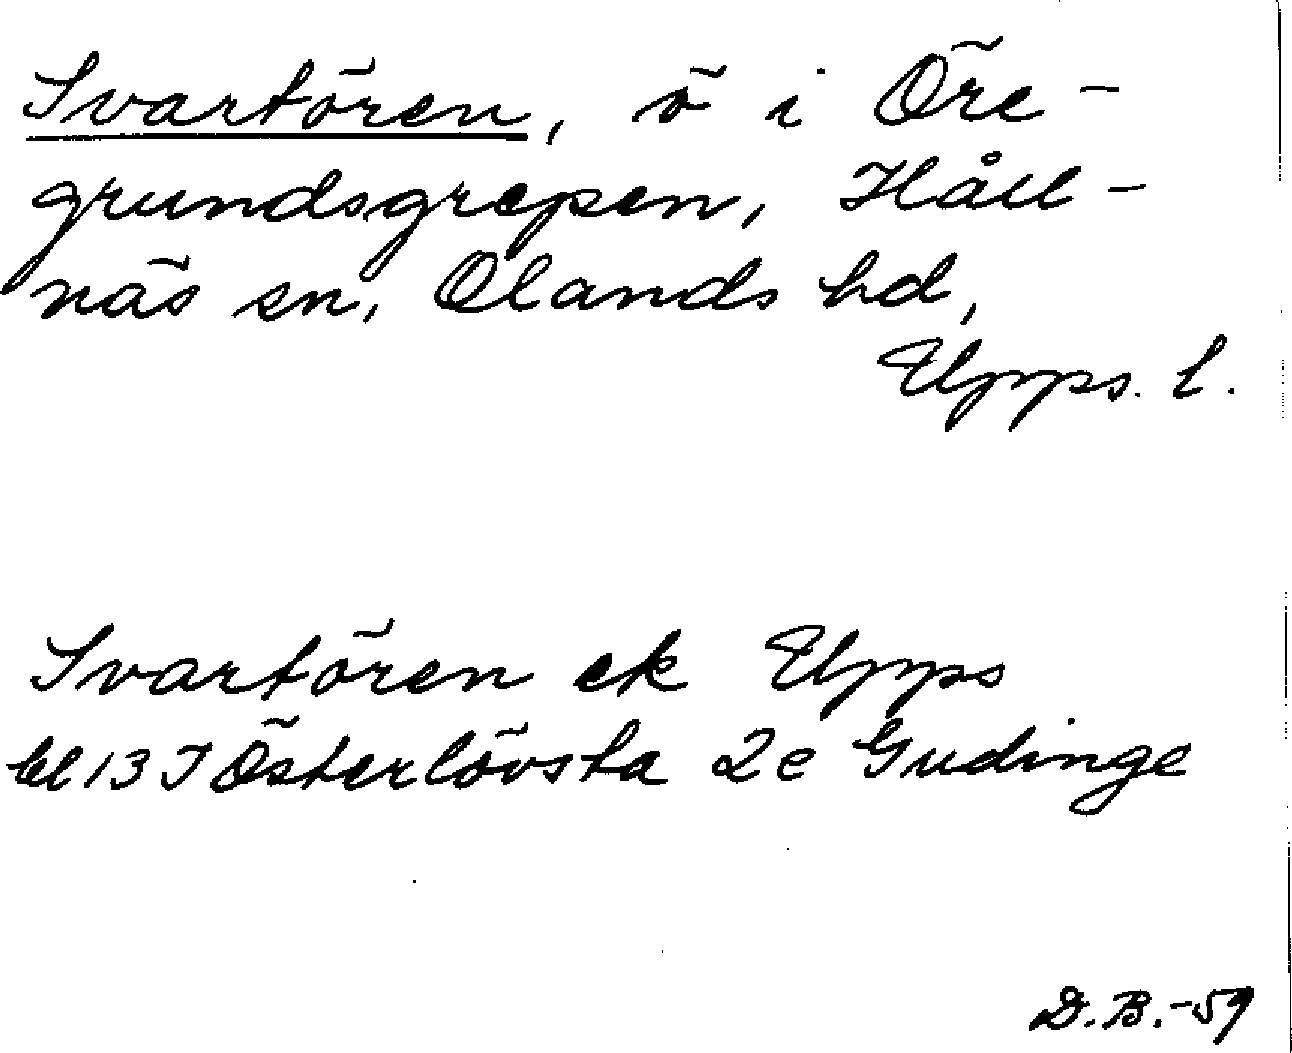 Svartören, ö i Öre-
grundsgrepen, Håll-
näs sn, Olands hd,
Upps. l.
Svartören ek Upps
bl 13 J Österlövsta 2e Gudinge
D.B.-59